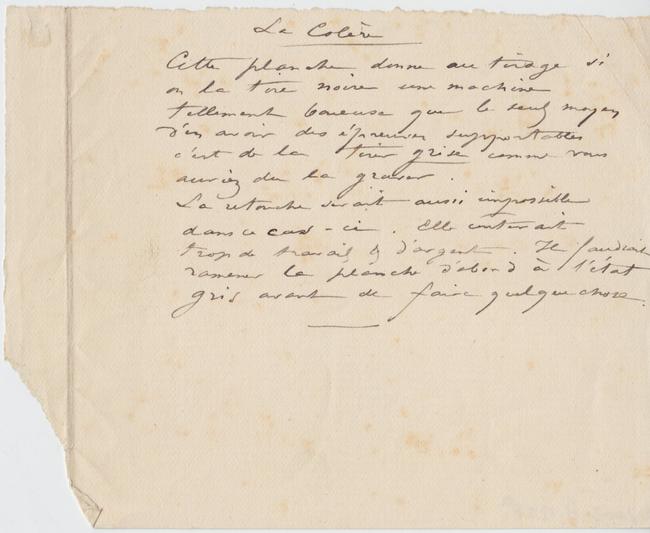 La Colère
Cette planche donne au tirage si
on la tire noire une machine
tellement boueuse que le seul moyen
d'en avoir des épreuves supportables
c'est de la tirer grise comme vous
auriez du la graver.
La retouche serait aussi impossible
dans ce cas-ci. Elle couterait
trop de travail & d'argent. Il faudrait
ramener la planche d'abord à l'état
gris avant de faire quelque chose.